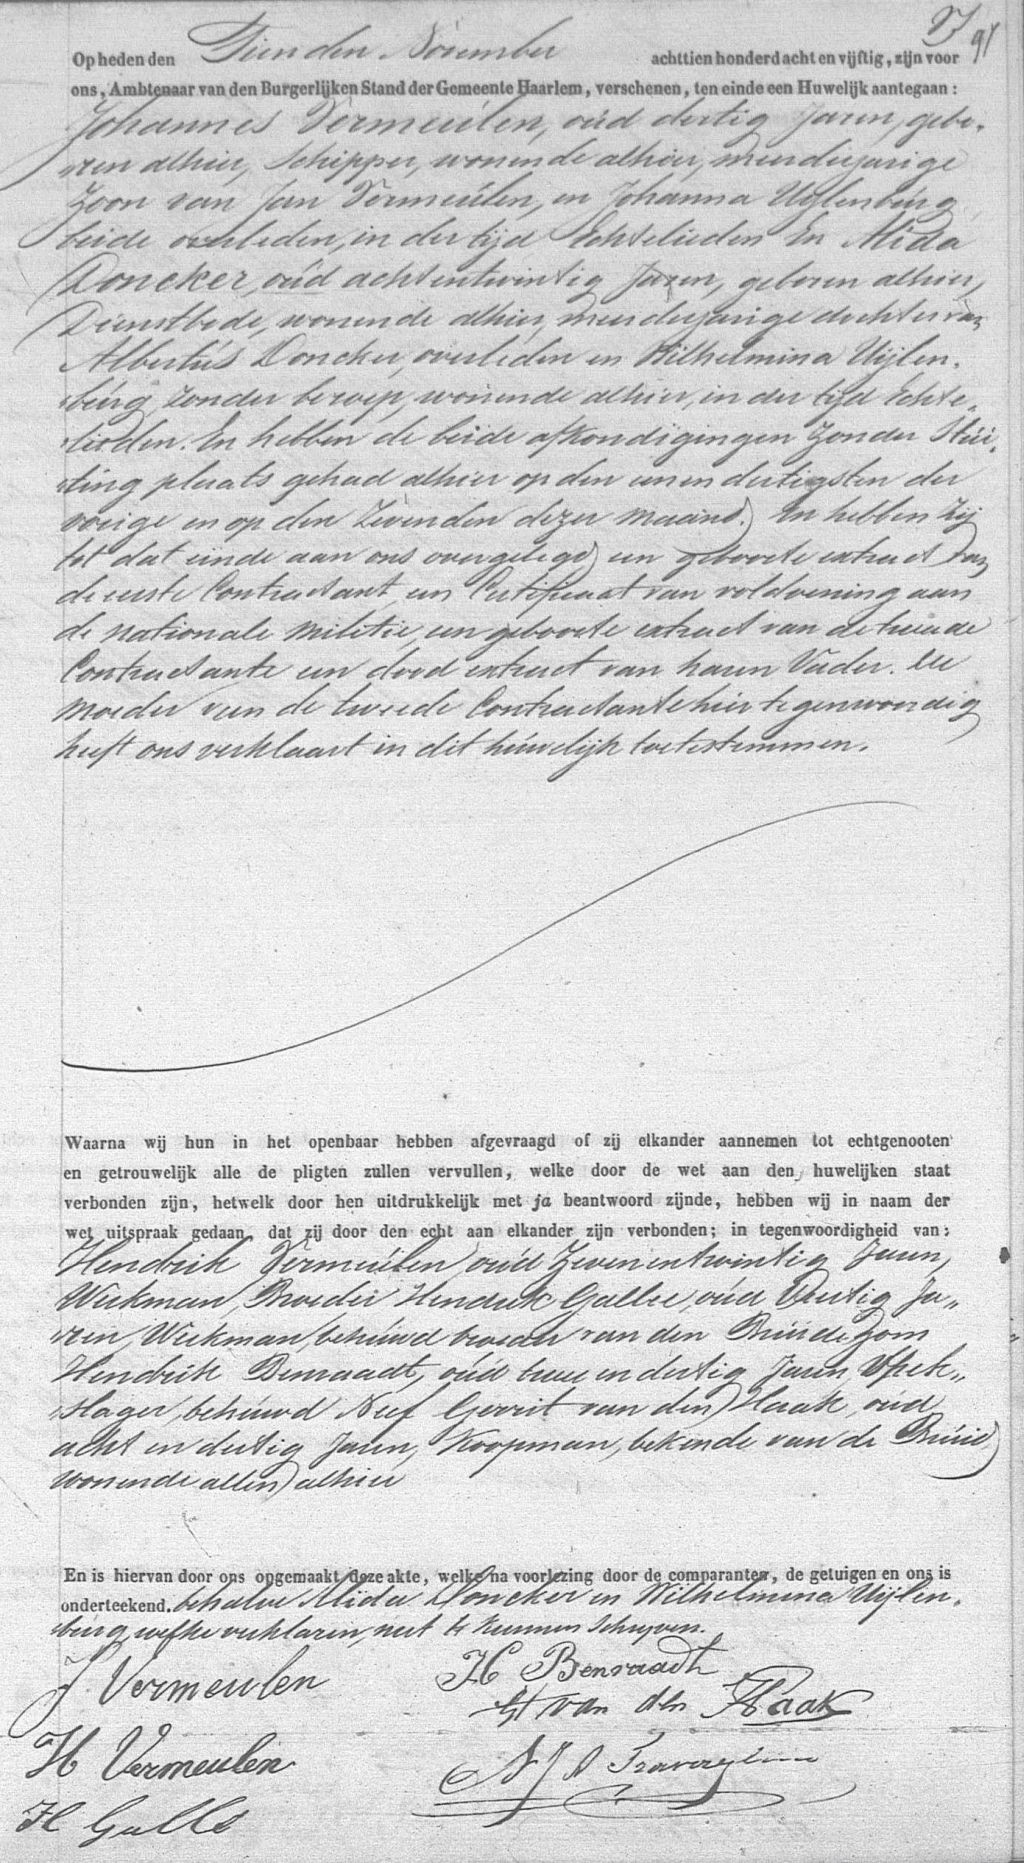 91
Op heden den Tienden November achttien honderd acht en vijftig, zijn voor
ons, Ambtenaar van den Burgerlijken Stand der Gemeente Haarlem, verschenen, ten einde een Huwelijk aantegaan:
Johannes Vermeulen, oud dertig Jaren, gebo„
ren alhier, Schipper, wonende alhier, meerderjarige
Zoon van Jan Vermeulen, en Johanna Uijlenburg
beide overleden, in der tijd Echtelieden En Alida
Doncker, oud achtentwintig Jaren, geboren alhier,
Dienstbode, wonende alhier, meerderjarige dochter van
Albertus Doncker, overleden en Wilhelmina Uijlen„
burg, zonder beroep, wonende alhier, in der tijd Echte„
lieden. En hebben de beide afkondigingen zonder Stui„
ting plaats gehad alhier op den eenendertigsten der
vorige en op den Zevenden dezer maand. En hebben zij
tot dat einde aan ons overgelegd een geboorte extract van
de eerste Contractant, een Certificaat van voldoening aan
de nationale militie, een geboorte extract van de tweede
Contractante een dood extract van haren Vader. De
Moeder van de tweede Contractante hier tegenwoordig
heeft ons verklaart in dit huwelijk toetestemmen.
Waarna wij hun in het openbaar hebben afgevraagd of zij elkander aannemen tot echtgenooten
en getrouwelijk alle de pligten zullen vervullen, welke door de wet aan den huwelijken staat
verbonden zijn, hetwelk door hen uitdrukkelijk met ja beantwoord zijnde, hebben wij in naam der
wet uitspraak gedaan, dat zij door den echt aan elkander zijn verbonden; in tegenwoordigheid van:
Hendrik Vermeulen, oud Zevenentwintig Jaren,
Werkman, Broeder Hendrik Gallee, oud Dertig Ja„
ren, Werkman, behuwd broeder van den Bruidegom
Hendrik Benraadt, oud twee en dertig Jaren, Spek„
slager, behuwd Neef Gerrit van den Haak, oud
acht en dertig Jaren, Koopman, bekende van de Bruid,
wonende allen alhier
En is hiervan door ons opgemaakt deze akte, welke na voorlezing door de comparanten, de getuigen en ons is
onderteekend. behalve Alida Doncker en Wilhelmina Uijlen„
burg, welke verklaren, niet te kunnen Schrijven.
J Vermeulen
H Benraadt
G van den Haak
H Vermeulen
H Galle